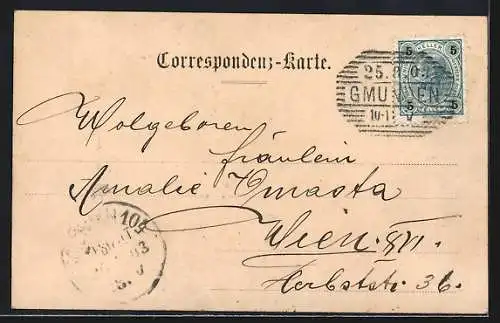 Correspondenz-Karte.
5 5
5 5
25.8.0
GMUNDEN
10-1
Wolgeboren
fräulein
Amalie Vmasta
Wien XVI.
Herbststr. 36.
104